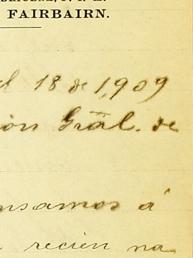 FAIRBAIRN.
18 de 1,909
Gräl. de
nsamos á
recien na